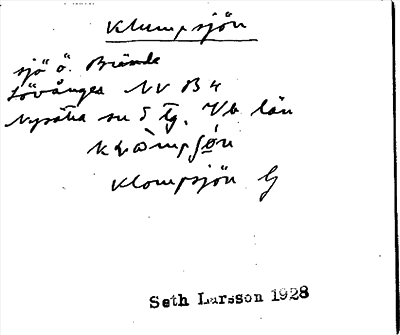 Klumpsjön
sjö ö. Brände
Lövånger NV B4
Nysätra sn S tg. Vb län
Klompsjön G
Seth Larsson 1928